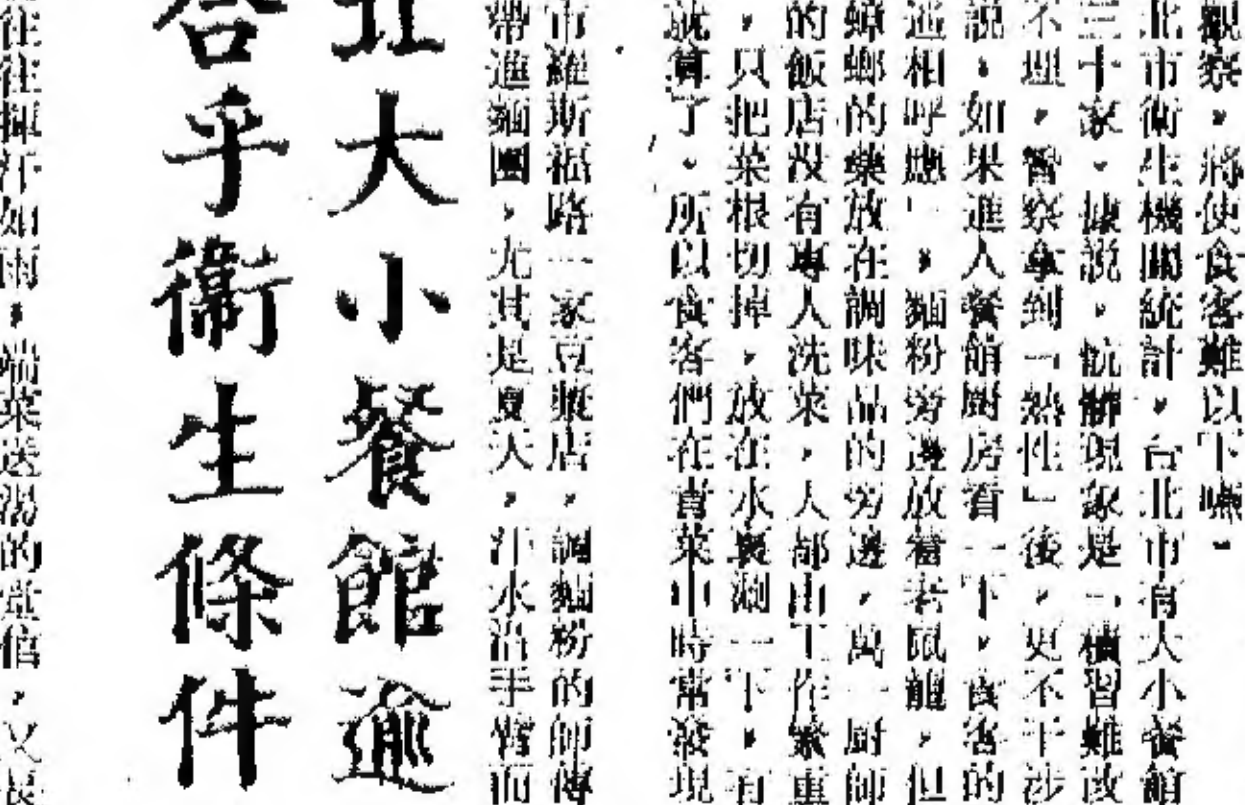 觀察，將使食客難以下嚥。
北市衛生機關統計，台北市有大小餐館
三十家。據說，骯髒現象是「積習難改
不理，警察拿到「熱性」後，更不干涉
說，如果進入餐館廚房看一下，食客的
遙相呼應」，麵粉旁邊放著老鼠籠，但
蟑螂的藥放在調味品的旁邊，萬一廚師
的飯店沒有專人洗菜，人都由工作繁重
，只把菜根切掉，放在水裏涮一下，有
就算了。所以食客們在青菜中時常發現
市羅斯福路一家豆漿店，調麵粉的師傅
帶進麵團，尤其是夏天，汗水沿手臂而
北大小餐館逾
合乎衛生條件
往往揮汗如雨，端菜送湯的堂倌，又長